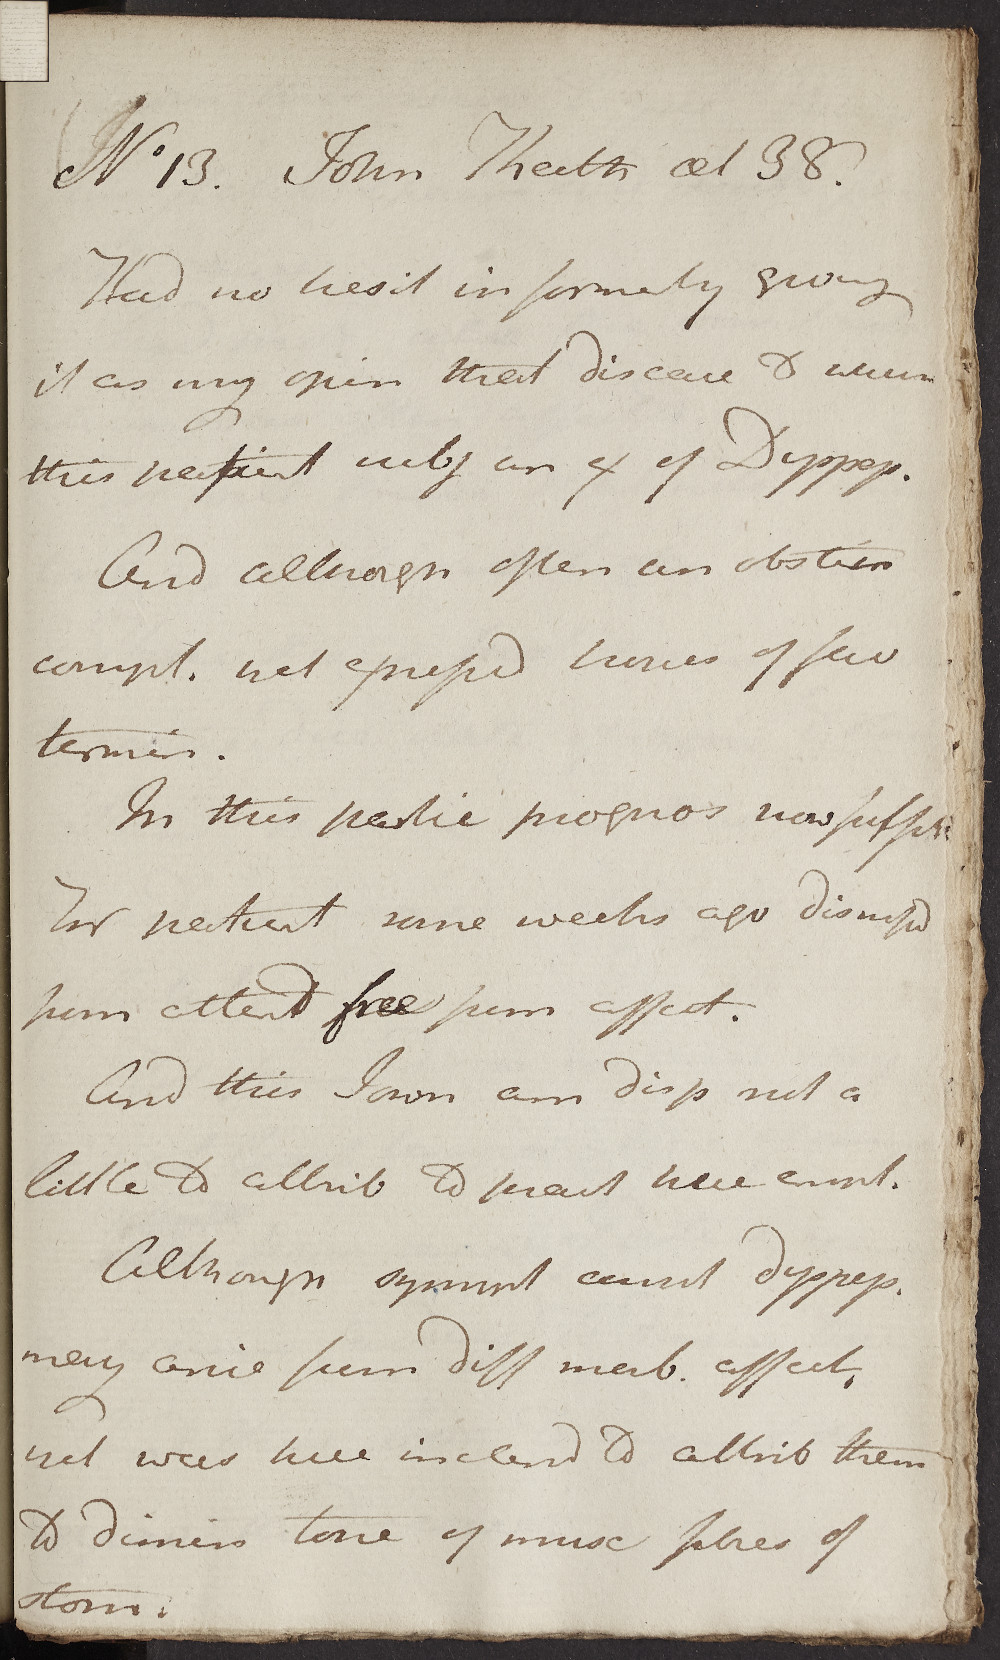 No 13. John Keath æt 38.
Had no hesit in formerly giving
it as my opin that disease to whom
this patient subj an ex of Dyspep.
And although often an obstin
compl. yet expressd hopes of fav
termin.
In this partic prognos now suff
For patient some weeks ago dismissd
from attend free from affect.
And this I own am disp not a
little to attrib to pract here empl.
Although sympt const dyspep.
may arise from diff morb. affect,
yet was here inclend to attrib them
to dimin tone of musc fibres of
stom.